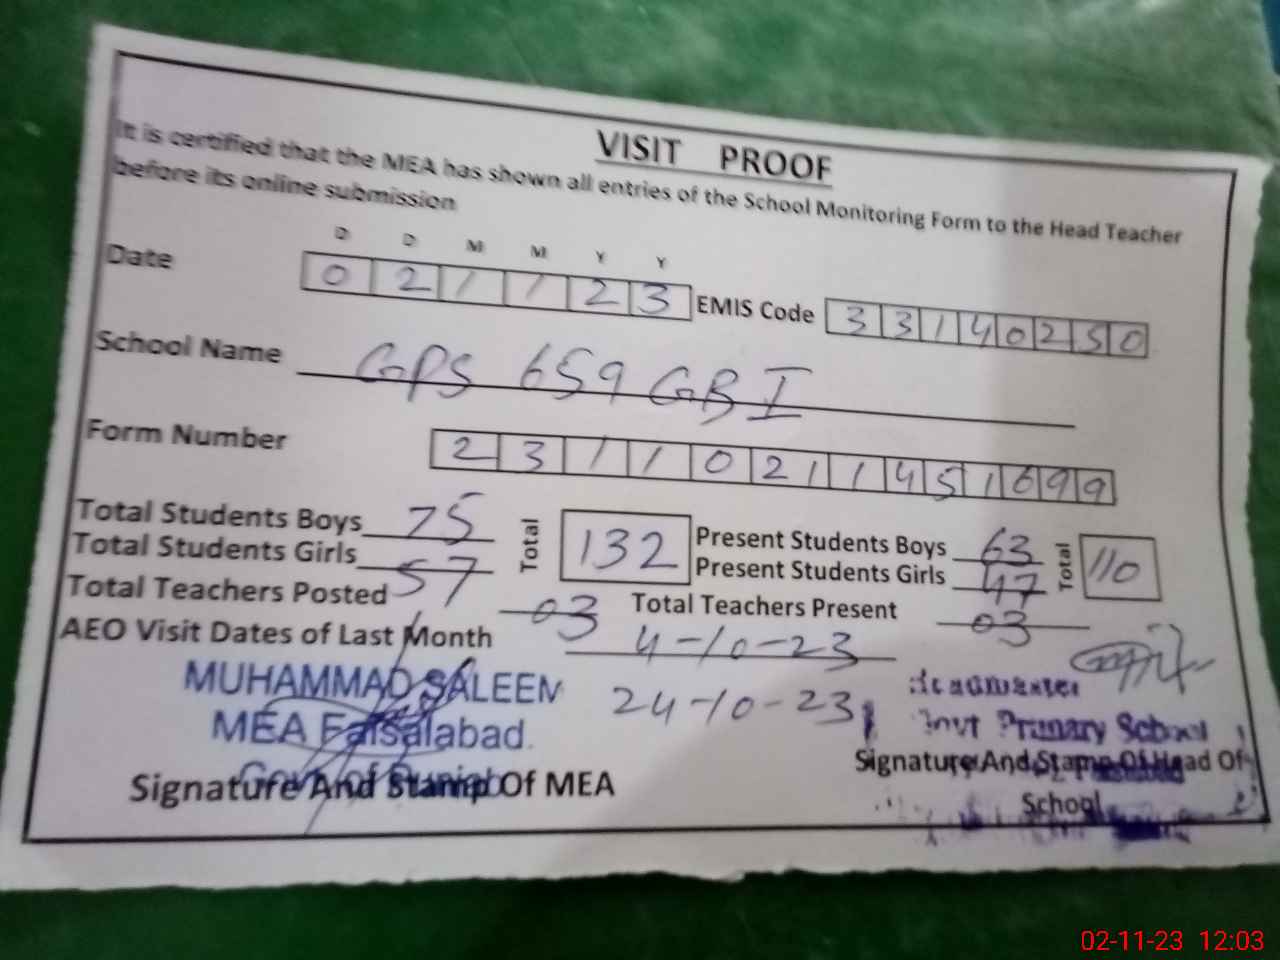 VISIT PROOF
It is certified that the MEA has shown all entries of the School Monitoring Form to the Head Teacher
before its online submission
D D M M Y Y
Date 0 2 1 1 2 3 EMIS Code 3 3 1 4 0 2 5 0
School Name GPS 659 GB I
Form Number 2 3 1 1 0 2 1 1 4 5 1 6 9 9
Total Students Boys 75 Total 132 Present Students Boys 63 Total 110
Total Students Girls 57 Present Students Girls 47
Total Teachers Posted 03 Total Teachers Present 03
AEO Visit Dates of Last Month 4-10-23
24-10-23
MUHAMMAD SALEEM
MEA Faisalabad.
Govt of Punjab
Signature And Stamp Of MEA
Headmaster
Govt Primary School
Signature And Stamp Of Head Of
School
02-11-23 12:03